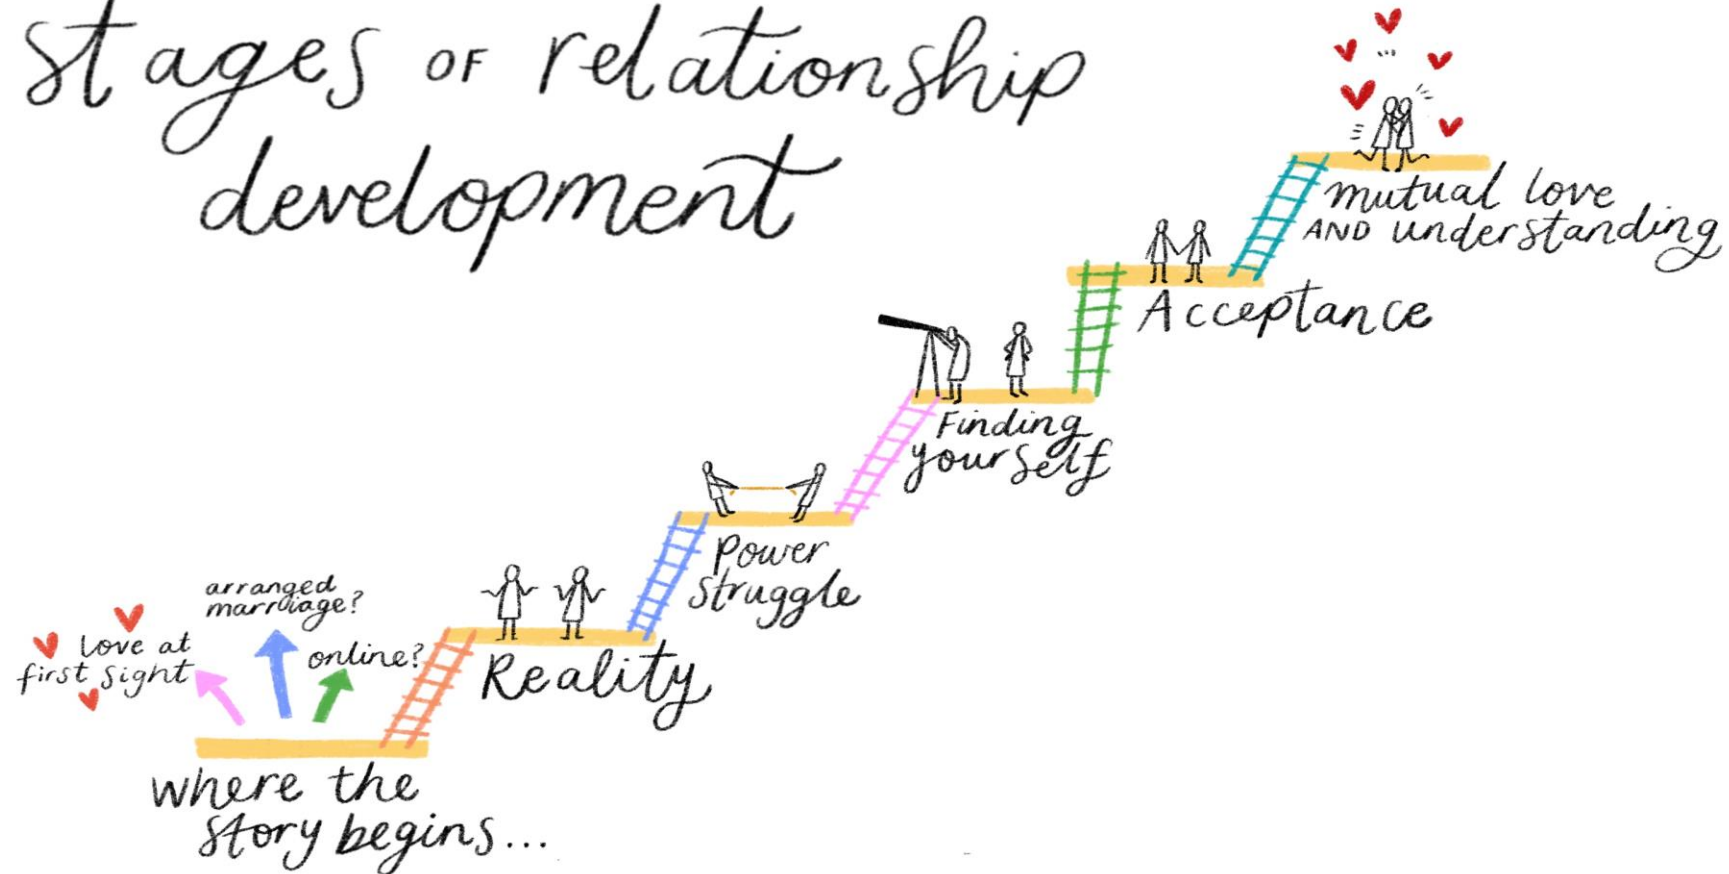 stages OF relationship
development
mutual love
AND understanding
Acceptance
Finding
yourself
power
struggle
arranged
marriage?
love at
first sight
online?
Reality
where the
story begins...